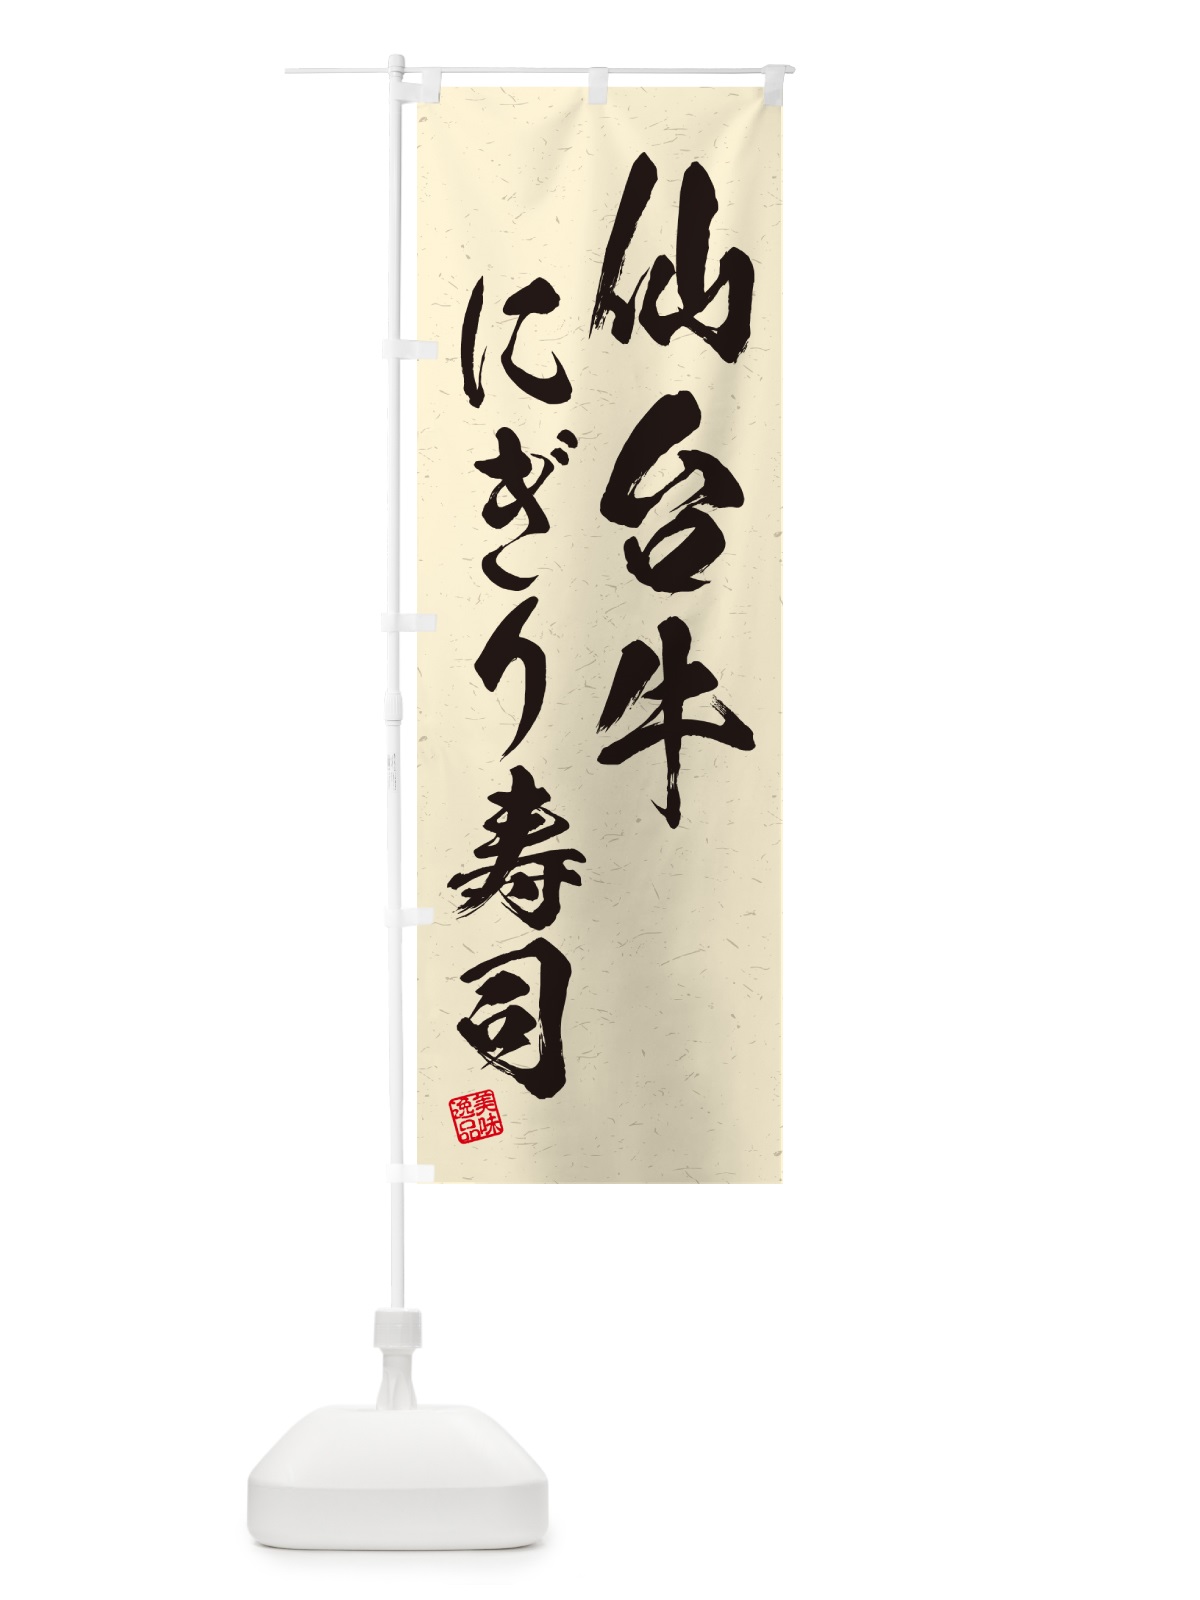 仙台牛
にぎり寿司
美味
逸品